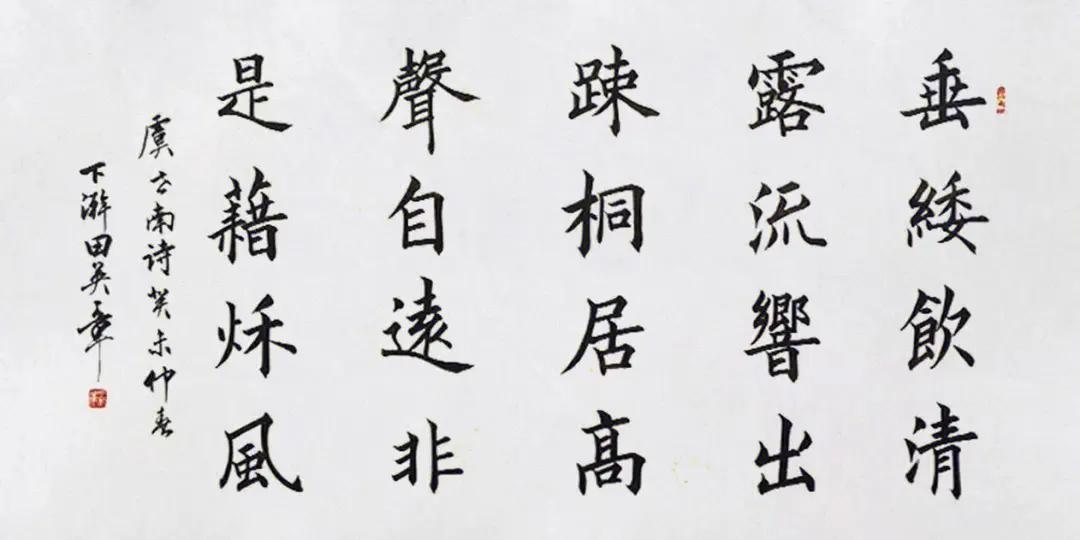 垂緌飲清
露流響出
踈桐居髙
聲自遠非
是藉秌風
虞世南诗癸未仲春
下澣田英章